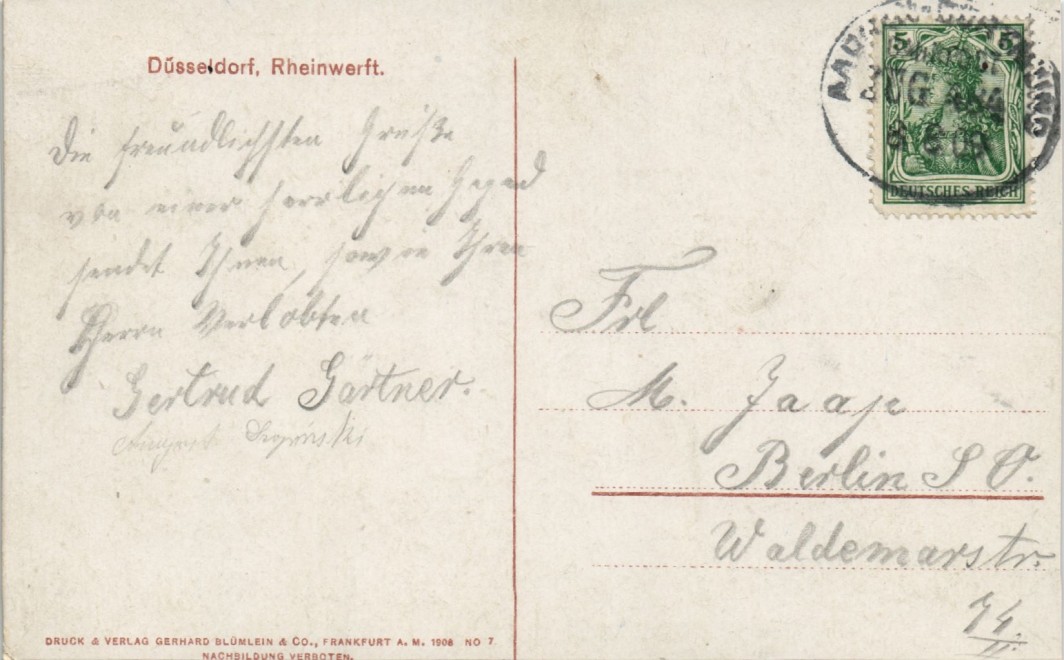 Düsseldorf, Rheinwerft.
Die freundlichsten Grüße
von einer herrlichen Gegend
sendet Ihnen, sowie Ihren
Herrn Verlobten
Gertrud Gärtner.
August
5 5
ZUG
DEUTSCHES REICH
Frl
M. Jaap
Berlin S O.
Waldemarstr.
74.
II.
DRUCK & VERLAG GERHARD BLÜMLEIN & CO., FRANKFURT A. M. 1908 NO 7
NACHBILDUNG VERBOTEN.